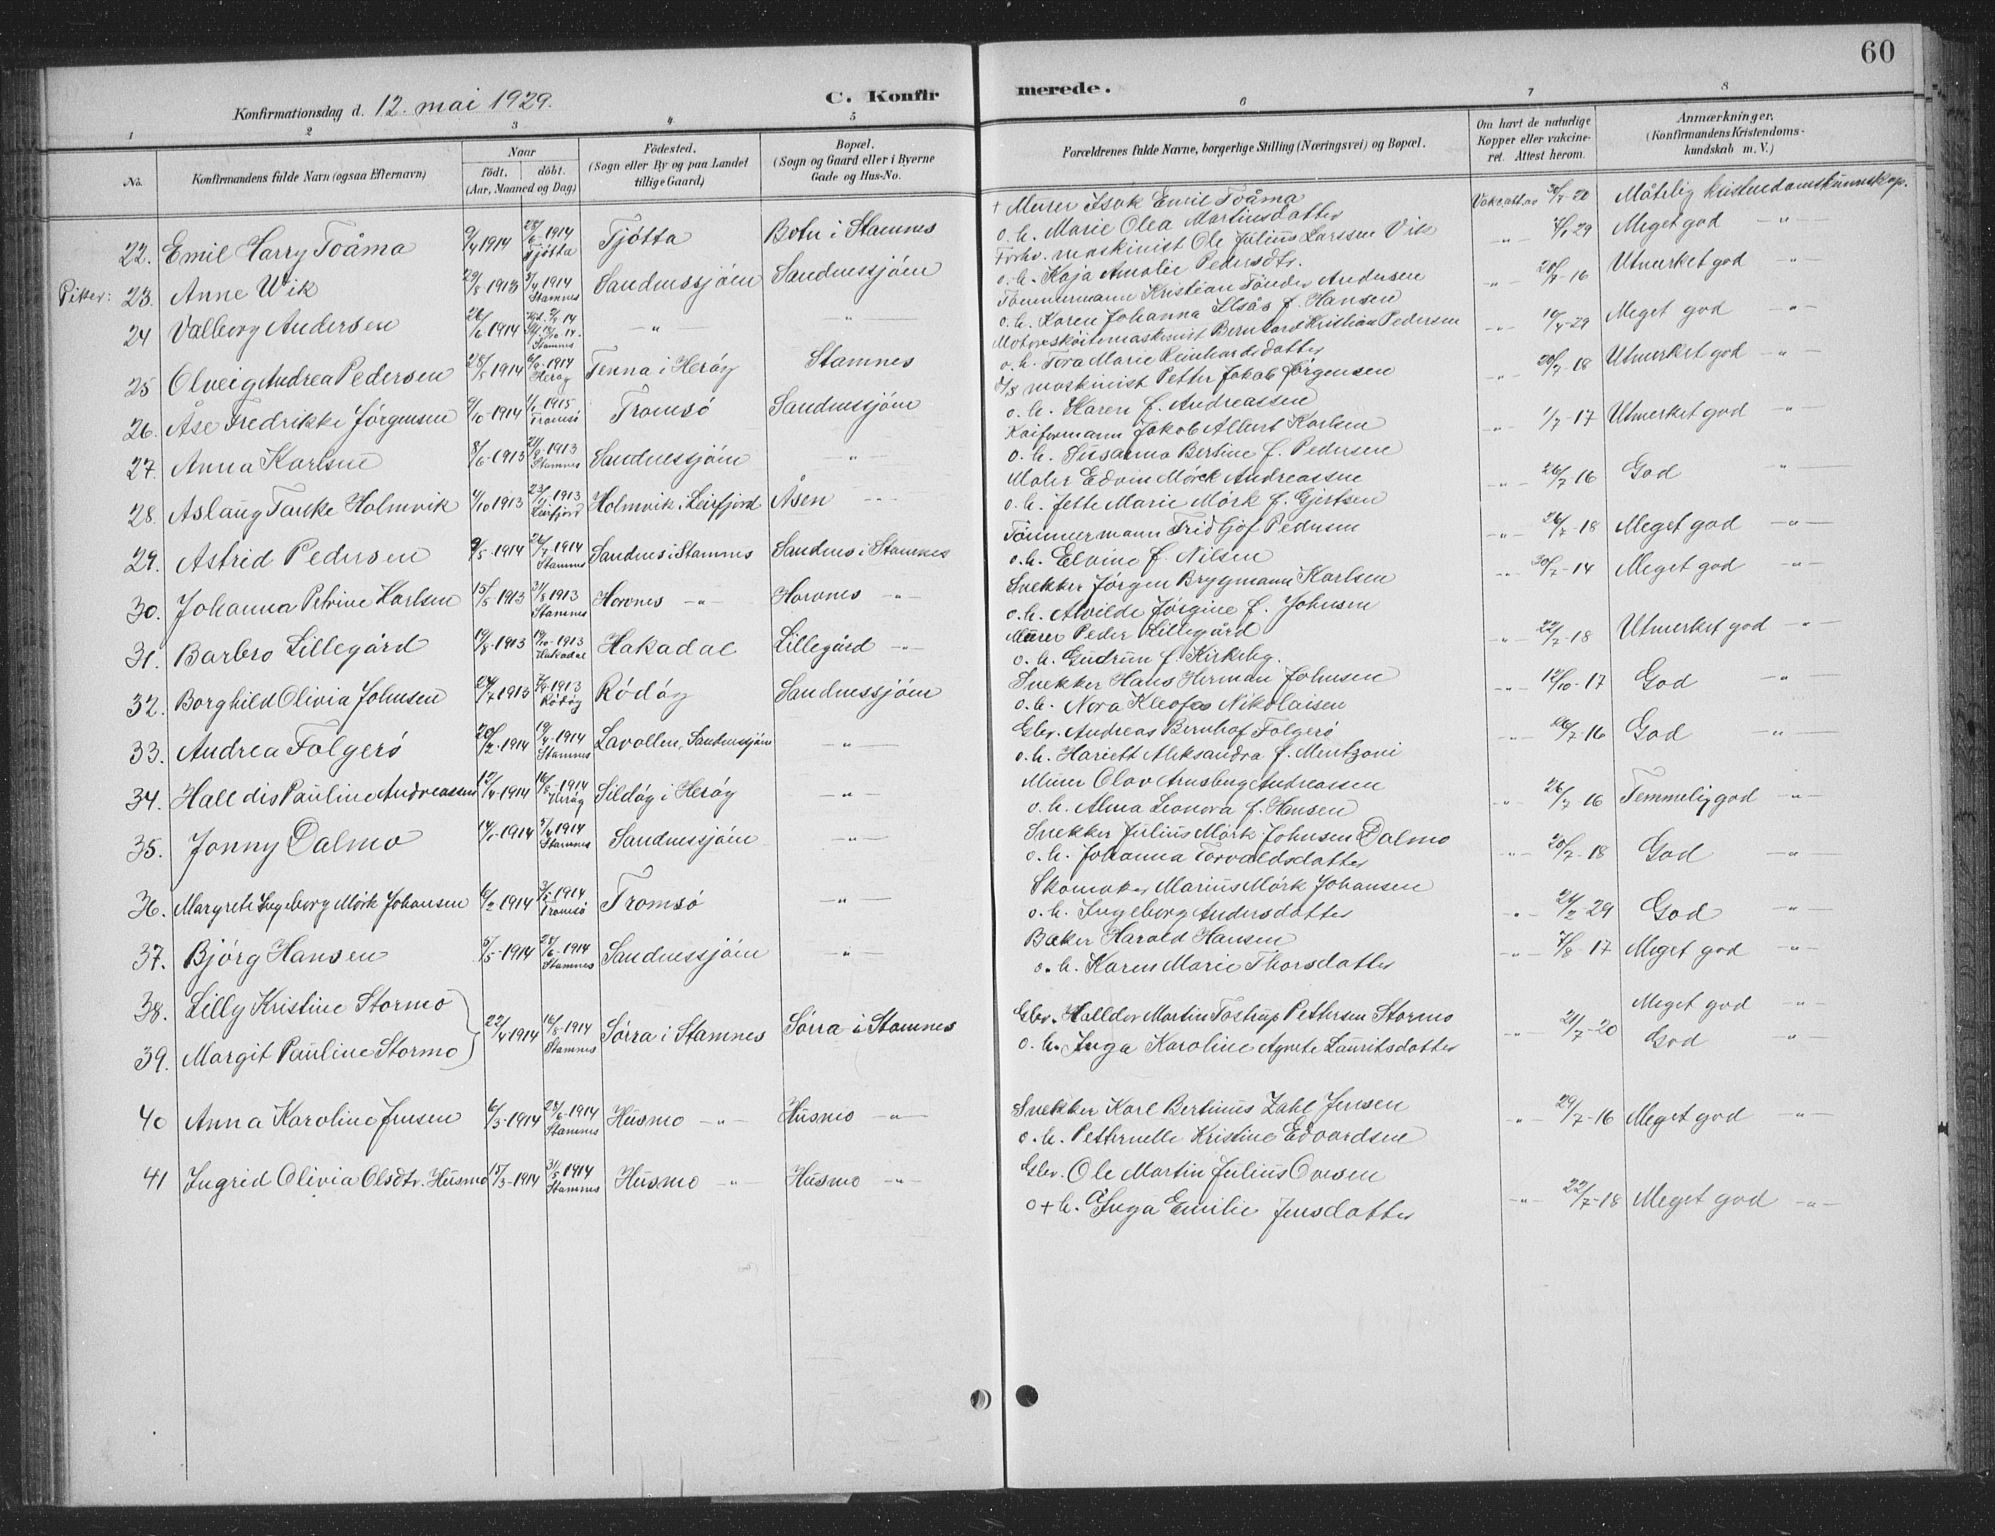 60
Konfirmationsdag d. 12. mai 1929. C. Konfir merede.
1 2 3 4 5 6 7 8
No. Konfirmandens fulde Navn (ogsaa Efternavn) Naar födt. döbt. (Aar, Maaned og Dag) Födested. (Sogn eller By og paa Landet tillige Gaard) Bopæl. (Sogn og Gaard eller i Byerne Gade og Hus-No. Forældrenes fulde Navne, borgerlige Stilling (Næringsvei) og Bopæl. Om havt de naturlige Kopper eller vakcineret. Attest herom. Anmærkninger. (Konfirmandens Kristendomskundskab m. V.)
22. Emil Harry Toåma 9/4 1914 28/6-1914 Tjøtta Tjøtta Botn i Stamnes + Murer Isak Emil Toåma 30/7-20 Måtelig kristendomskunnskap.
o. h. Marie Olea Martinsdatter
Piker: 23. Anne Wik 29/8 1913 5/4 1914 Stamnes Sandnessjøen Sandnessjøen Forhv. maskinist Ole Julius Larssen Vik -"- 4/1 29 Meget god -"-
o. h. Kaja Amalie Pedersdtr.
24 Valborg Andersen 26/6 1914 Stamnes -"- -"- Tømmermann Kristian Tønder Andersen -"- 20/7-16 Utmerket god -"-
o. h. Karen Johanna Ilsås f. Hansen
25. Olveig Andrea Pedersen 28/5 1914 6/9-1914 Herøy Tenna i Herøy Stamnes Motorskøitemaskinist Bernhard Kristian Pedersen -"- 10/4-29 Meget god -"-
o. h. Tora Marie Reinhardsdatter
26. Åse Fredrikke Jørgensen 9/10-1914 1/1-1915 Tromsø Tromsø Sandnessjøen D/S maskinist Petter Jakob Jørgensen -"- 20/7-18 Utmerket god -"-
o. h. Haren f. Andreassen
27. Anna Karlsen 8/6-1913 21/9-1913 Stamnes Sandnessjøen -"- Kaiformann Jakob Albert Karlsen -"- 1/7-17 Utmerket god -"-
o. h. Susanna Bertine f. Pedersen
28. Aslaug Tanke Holmvik 4/10 1913 23/11 1913 Leirfjord Holmvik i Leirfjord Åsen -"- Maler Edvin Mørck Andreassen -"- 26/7 16 God -"-
o. h. Jette Marie Mørk f. Gjertsen
29. Astrid Pedersen 9/5-1914 26/7-1914 Stamnes Sandnes i Stamnes Sandnes i Stamnes Tømmermann Fridtjof Pedersen -"- 26/7-18 Meget god -"-
o. h. Elvine f. Nilsen
30. Johanna Petrine Karlsen 15/5 1913 31/8 1913 Stamnes Horvnes -"- Horvnes -"- Snekker Jørgen Brygmann Karlsen -"- 30/7-14 Meget god -"-
o. h. Alvilde Jørgine f. Johnsen
31. Barbro Lillegård 19/8-1913 19/10-1913 Hakadal Hakadal Lillegård -"- Murer Peder Lillegård -"- 22/7-18 Utmerket god -"-
o. h. Gudrun f. Kirkeby.
32. Borghild Olivia Johnsen 24/7 1913 7/9-1913 Rødøy Rødøy Sandnessjøen Snekker Hans Herman Johnsen -"- 12/10-17 God -"-
o. h. Nora Kleofas Nikolaisen
33. Andrea Folgerø 20/2-1914 19/4-1914 Stamnes Lavollen, Sandnessjøen -"- Gbr. Andreas Bernhof Folgerø -"- 26/7-16 God -"-
o. h. Hariett Aleksandra f. Mentzoni
34. Halldis Pauline Andreassen 12/4-1914 16/8-1914 Herøy Sildøy i Herøy -"- Murer Olav Arnsberg Andreassen -"- 26/7 16 Temmelig god -"-
o. h. Alma Leonora f. Hansen
35. Jonny Dalmo 14/1-1914 5/4 1914 Stamnes Sandnessjøen -"- Snekker Julius Mørk Johnsen Dalmo -"- 20/7-18 God -"-
o. h. Johanna Torvaldsdatter
36. Margrete Ingeborg Mørk Johansen 6/2 1914 3/5-1914 Tromsø Tromsø -"- Skomaker Marius Mørk Johansen -"- 24/2-29 God -"-
o. h. Ingeborg Andersdatter
37. Bjørg Hansen 5/5-1914 28/6-1914 Stamnes Sandnessjøen -"- Baker Harald Hansen -"- 7/8-17 Meget god -"-
o. h. Karen Marie Thorsdatter
38. Lilly Kristine Stormo Meget god -"-
22/4 1914 16/8-1914 Stamnes Sørra i Stamnes Sørra i Stamnes Gbr. Halldor Martin Tostrup Pettersen Stormo -"- 21/7-20
39. Margit Pauline Stormo o. h. Inga Karoline Agnete Lauritsdatter God -"-
40 Anna Karoline Jensen 6/3-1914 28/6-1914 Stamnes Husmo -"- Husmo -"- Snekker Karl Bertinus Zahl Jensen -"- 29/7-16 Meget god -"-
o. h. Petternelle Kristine Edvardsen
41 Ingrid Olivia Olsdtr. Husmo 15/3-1914 31/5 1914 Stamnes Husmo -"- Husmo -"- Gbr. Ole Martin Julius Ovesen -"- 22/7-18 Meget god -"-
o + h. Inga Emilie Jensdatter